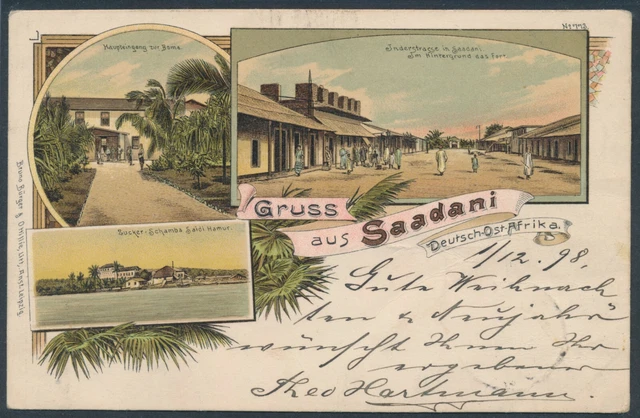 No 773
Haupteingang zur Boma.
Inderstrasse in Saadani.
Im Hintergrund das Fort.
Gruss
aus Saadani
Deutsch-Ost-Afrika.
Zucker-Schamba Saidi Hamur.
Bruno Bürger & Ottilie, Lith. Anst. Leipzig.
1/12.98,
Gute Weihnach
ten & Neujahr
wünscht Ihnen Ihr
ergebener
Theo Hartmann.